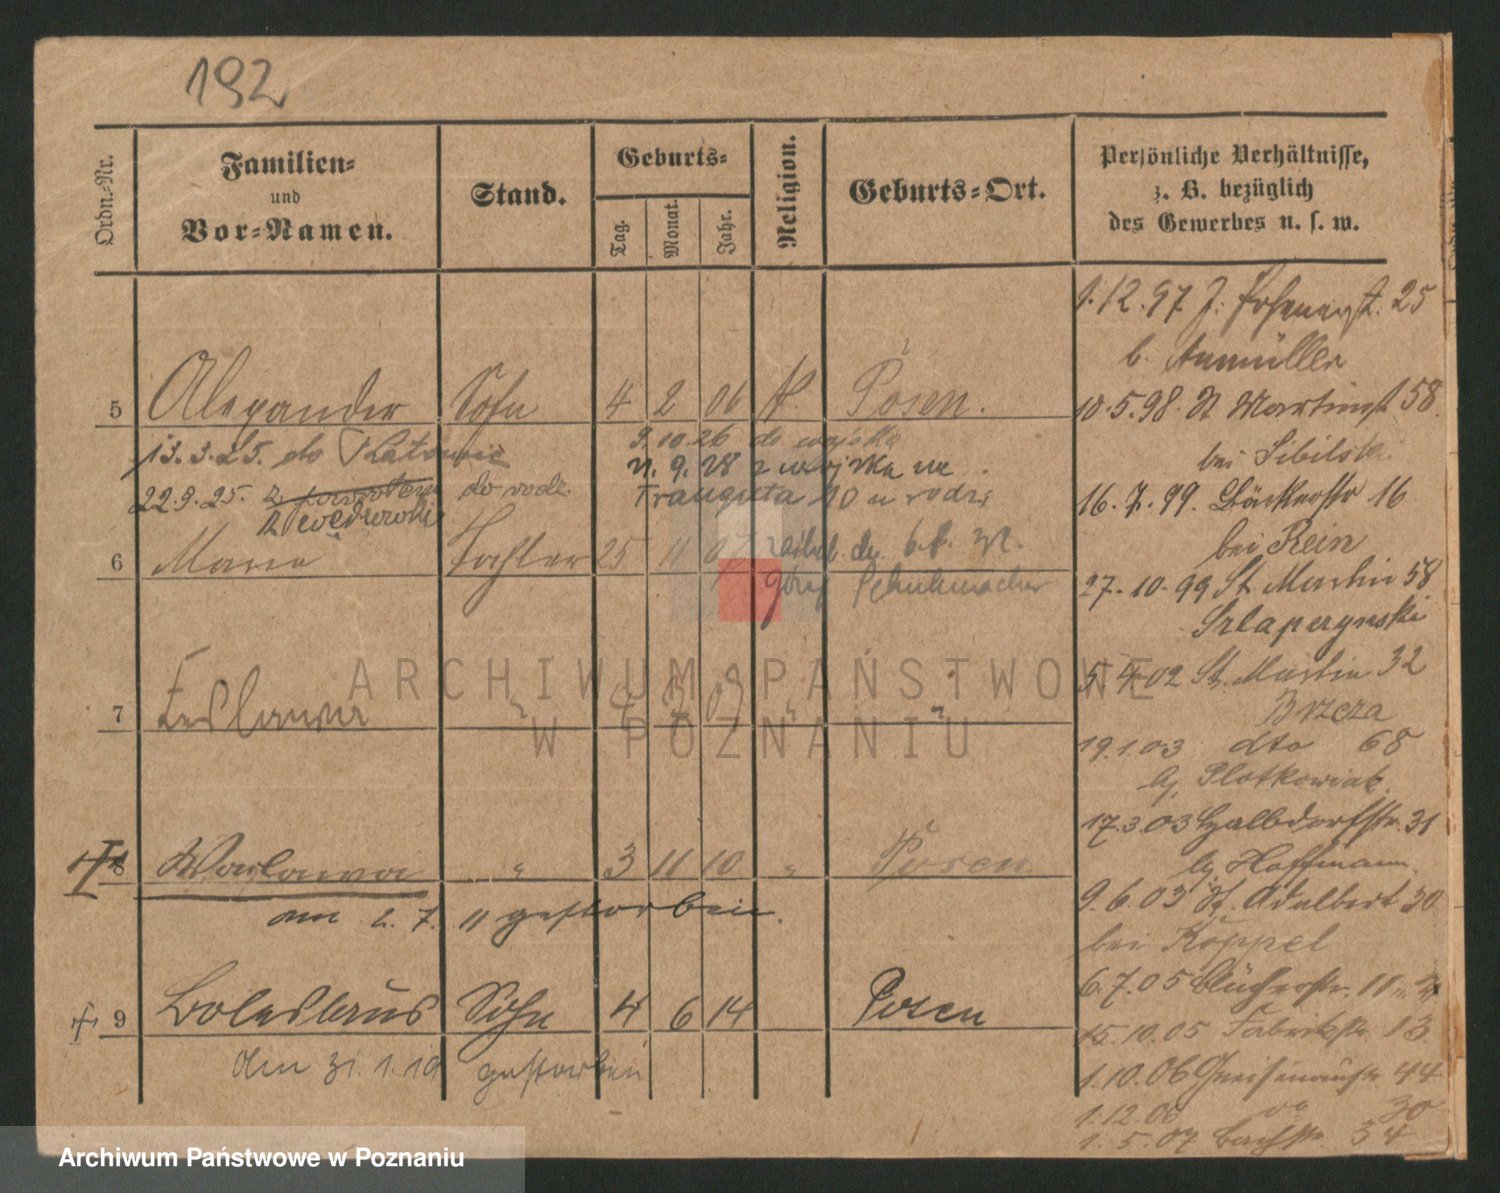 192
Ordn.-Nr.
Familien-
und
Vor-Namen.
Stand.
Geburts-
Tag.
Monat.
Jahr.
Religion.
Geburts-Ort.
Persönliche Verhältnisse,
z. B. bezüglich
des Gewerbes u. s. w.
1.12.97 J. 25
b. Aumüller
5 Alexander Sohn 4 2 06 K. Posen.
10.5.98. St Martinst 58.
13.3.25. do Katowic
9.10.26 do wojska
9. 28 z wojska
bei Sibilski
22.9.25. z powrotem do rodz.
Traugutta 10 u rodzi
16.7.99. Bäckerstr 16
bei Rein
6 Maria Tochter 25 11 07
Schuhmacher
27.10.99 St. Martin 58
Szlaperynski
7 Zeslawa " 4 3 09 " "
5.4.02 St. Martin 32
Brzeza
19.1.03 dto 68
bj. Plotkowiak.
17.3.03 Halbdorfstr. 31
8 Waclawa " 3 11 10 " Posen
bj. Hoffmann.
am 2.7. 11 gestorben.
9.6.03 St. Adalbert 30
bei Koppel
6.7.05 Blücherstr. 11
9 Boleslaus Sohn 4 6 14 Posen
15.10.05 Fabrikstr. 13
den 31.1.19 gestorben
1.10.06 Gneisenaustr 44
1.12.06 do 30
1.5.07 Bachstr. 34
ARCHIWUM PAŃSTWOWE
W POZNANIU
Archiwum Państwowe w Poznaniu